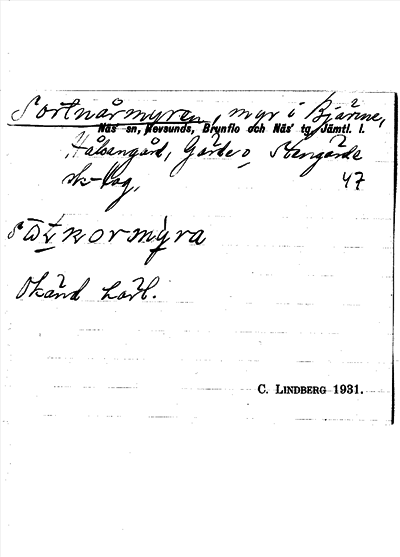 Sortnårmyren, myr i Bjärme,
Näs' sn, Revsunds, Brunflo och Näs' tg, Jämtl. l.
Hålsangård, Gärde o Stengärde
sk-lag, 47
Okänd härl.
C. LINDBERG 1931.